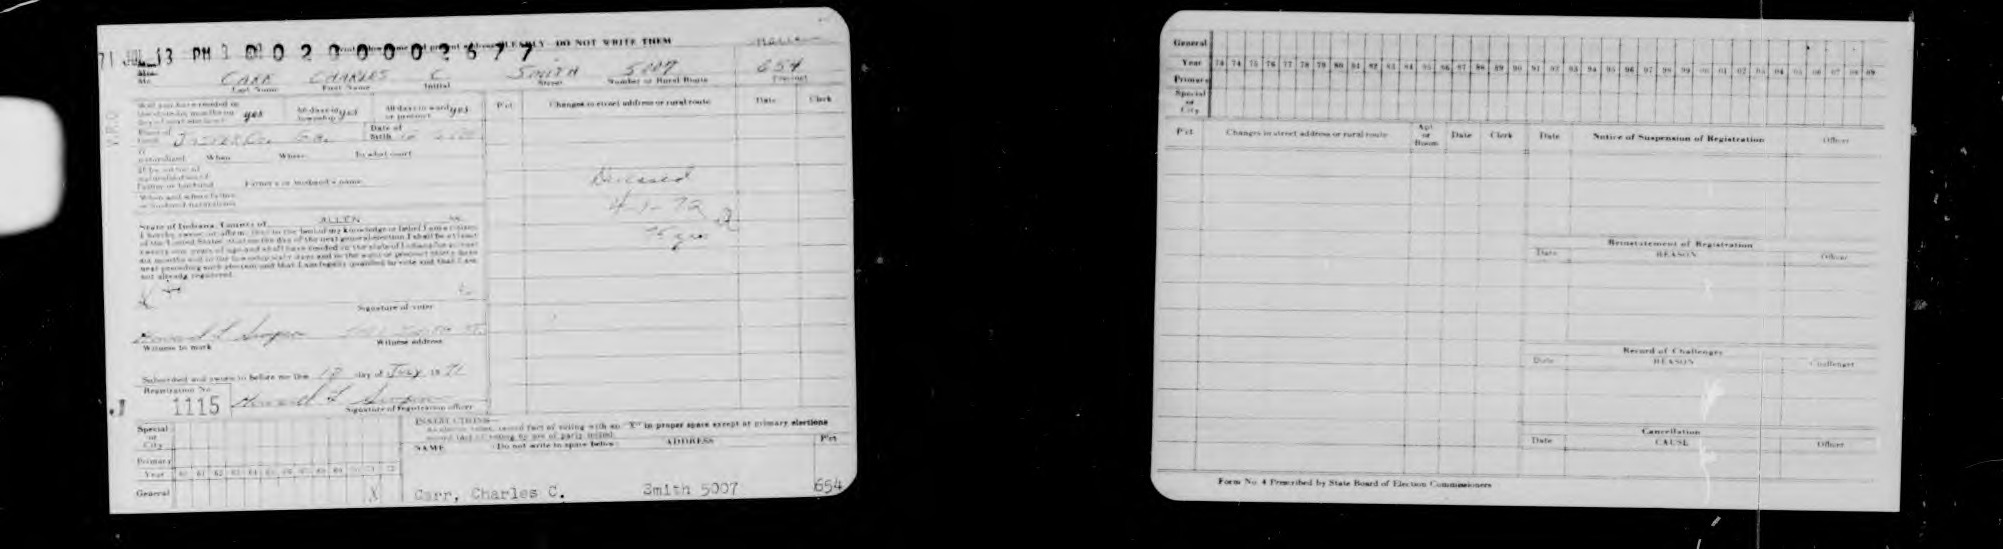 71 JUL 13 PM 1 0200002677 PLAINLY DO NOT WRITE THEM
Mr. CARR CHARLES C. SMITH 5007 654
Last Name First Name Initial Street Number or Rural Route Precinct
Will you have resided in the state six months on day of next election? yes 60 days in township? yes 30 days in ward or precinct yes
Pct Changes in street address or rural route Date Clerk
Place of birth JASPER CO. GA. Date of birth
If naturalized When Where In what court
If by virtue of naturalization of Father or husband Father's or husband's name
When and where father or husband naturalized
Deceased
4-1-72
State of Indiana, County of ALLEN ss.
I hereby swear, or affirm, that to the best of my knowledge or belief I am a citizen
of the United States, that on the day of the next general election I shall be at least
twenty-one years of age and shall have resided in the state of Indiana for at least
six months and in the township sixty days and in the ward or precinct thirty days
next preceding such election and that I am legally qualified to vote and that I am
not already registered.
X
Signature of voter
Howard L Simpson
Witness to mark Witness address
Subscribed and sworn to before me this day of July 1971
Registration No.
1115 Howard L Simpson
Signature of registration officer
INSTRUCTIONS
At election, record fact of voting with an "X" in proper space except at primary elections
record fact of voting by use of party initial.
NAME (Do not write in space below) ADDRESS Pct
Special or City
Primary
Year 60 61 62 63 64 65 66 67 68 69 70 71 72
General X
Carr, Charles C. Smith 5007 654
General
Year 73 74 75 76 77 78 79 80 81 82 83 84 85 86 87 88 89 90 91 92 93 94 95 96 97 98 99 00 01 02 03 04 05 06 07 08 09
Primary
Special or City
Pct Changes in street address or rural route Apt or Room Date Clerk Date Notice of Suspension of Registration Officer
Reinstatement of Registration
Date REASON Officer
Record of Challenges
Date REASON Challenger
Cancellation
Date CAUSE Officer
Form No. 4 Prescribed by State Board of Election Commissioners